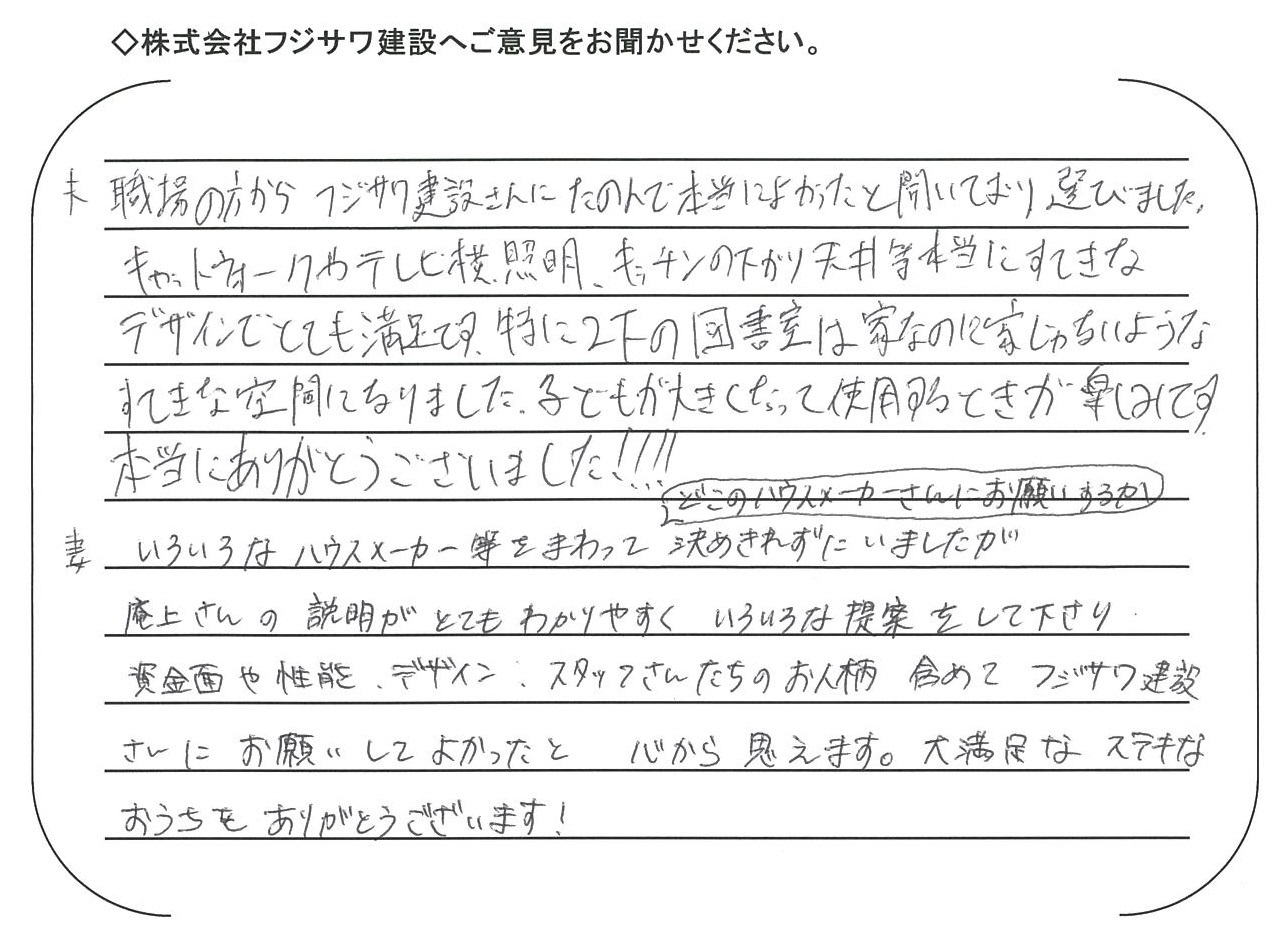 ◇株式会社フジサワ建設へご意見をお聞かせください。
夫 職場の方から フジサワ建設さんに たのんで本当によかったと聞いており 選びました。
キャットウォークやテレビ横照明、キッチンの下がり天井等本当にすてきな
デザインでとても満足です。特に2下の図書室は家なのに家じゃないような
すてきな空間になりました。子どもが大きくなって使用するときが楽しみです
本当にありがとうございました!!!!
どこのハウスメーカーさんにお願いするか
妻 いろいろな ハウスメーカー等をまわって 決めきれずに いましたが
庵上さんの 説明が とても わかりやすく いろいろな提案をして下さり
資金面や性能、デザイン、スタッフさんたちのお人柄 含めて フジサワ建設
さんに お願いしてよかったと 心から 思えます。大満足な ステキな
おうちを ありがとうございます!